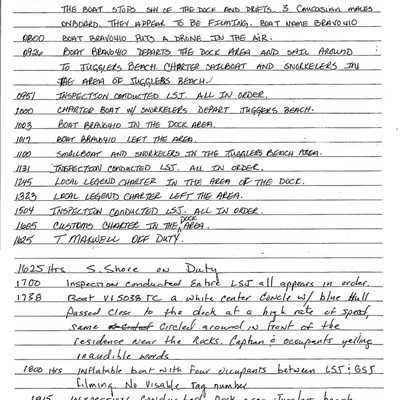 THE BOAT STOPS SW OF THE DOCK AND DRIFTS. 3 CAUCOSIAN MALES
ONBOARD. THEY APPEAR TO BE FILMING. BOAT NAME BRAVO410
0800 BOAT BRAVO410 PUTS A DRONE IN THE AIR.
0926 BOAT BRAVO410 DEPARTS THE DOCK AREA AND SAIL AROUND
TO JUGGLERS BEACH. CHARTER SAILBOAT AND SNORKELERS IN
THE AREA OF JUGGLERS BEACH.
0951 INSPECTION CONDUCTED LSJ. ALL IN ORDER.
1000 CHARTER BOAT W/ SNORKELERS DEPART JUGGERS BEACH.
1003 BOAT BRAVO410 IN THE DOCK AREA.
1017 BOAT BRAVO410 LEFT THE AREA.
1100 SMALLBOAT AND SNORKELERS IN THE JUGGLERS BEACH AREA.
1131 INSPECTION CONDUCTED LSJ. ALL IN ORDER.
1245 LOCAL LEGEND CHARTER IN THE AREA OF THE DOCK.
1323 LOCAL LEGEND CHARTER LEFT THE AREA.
1504 INSPECTION CONDUCTED LSJ. ALL IN ORDER.
1605 CUSTOMS CHARTER IN THE DOCK AREA.
1625 T. MAXWELL OFF DUTY.
1625 Hrs S. Shore on Duty
1700 Inspection conducted Entire LSJ all appears in order.
1738 Boat VI5038TC a white center Concle w/ blue Hull
Passed close to the dock at a high rate of speed,
same Circled around in front of the
residence near the Rocks. Captain & occupants yelling
inaudible words
1800 HRS Inflatable boat with Four occupants between LSJ & GSJ
filming. No Visable tag number